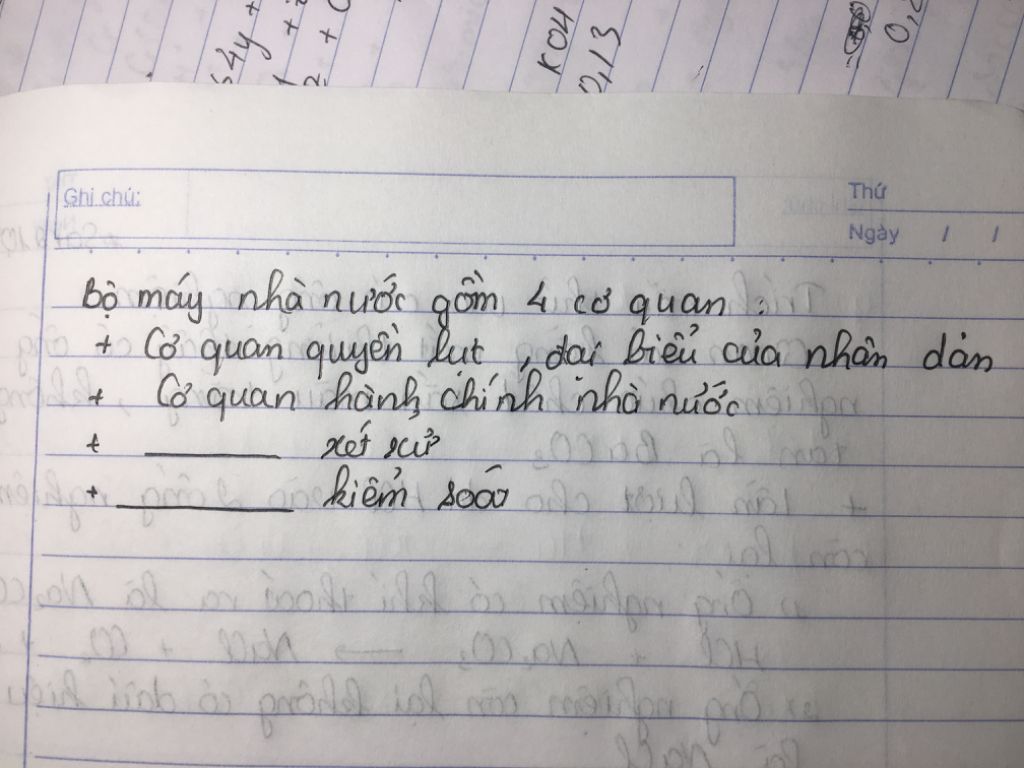 4y +
+
2 +
KOH
0,13
0,2
Ghi chú:
Thứ
Ngày / /
Bộ máy nhà nước gồm 4 cơ quan :
+ Cơ quan quyền lut , đai biểu của nhân dân
+ Cơ quan hành chính nhà nước
+ ________ xét xử
+ __________ kiểm soá